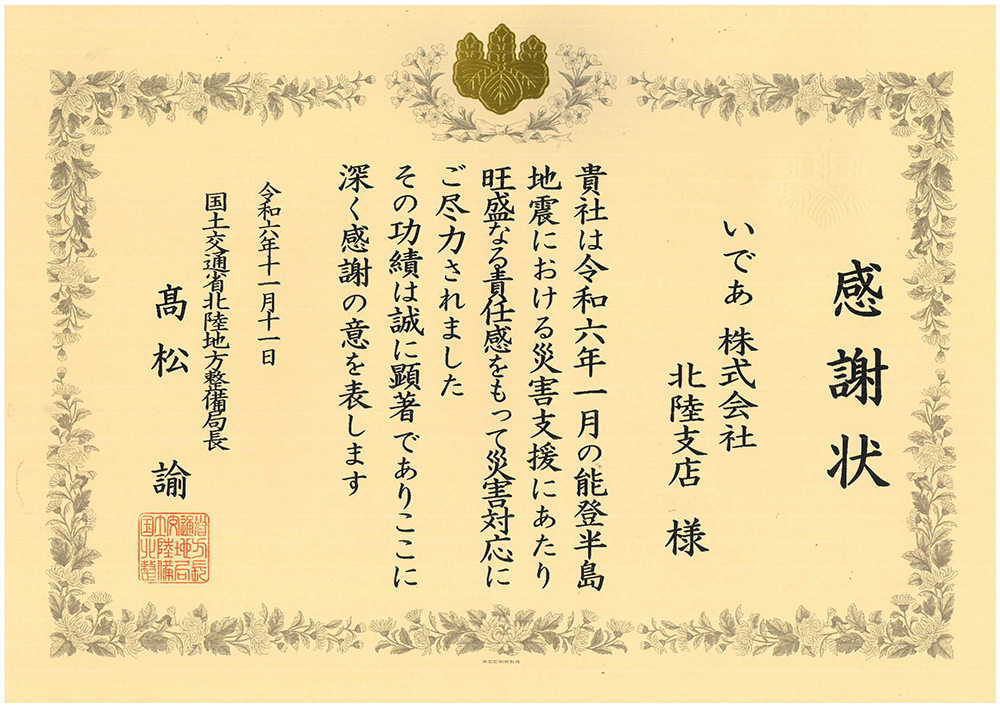 感謝状
いであ 株式会社
北陸支店 様
貴社は令和六年一月の能登半島
地震における災害支援にあたり
旺盛なる責任感をもって災害対応に
ご尽力されました
その功績は誠に顕著でありここに
深く感謝の意を表します
令和六年十一月十一日
国土交通省北陸地方整備局長
髙松 諭